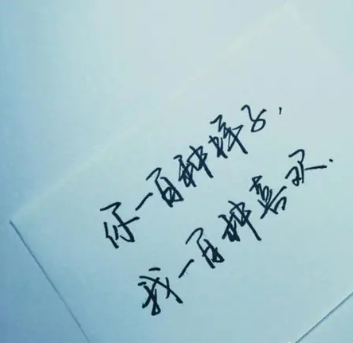 你一百种样子，
我一百种喜欢．